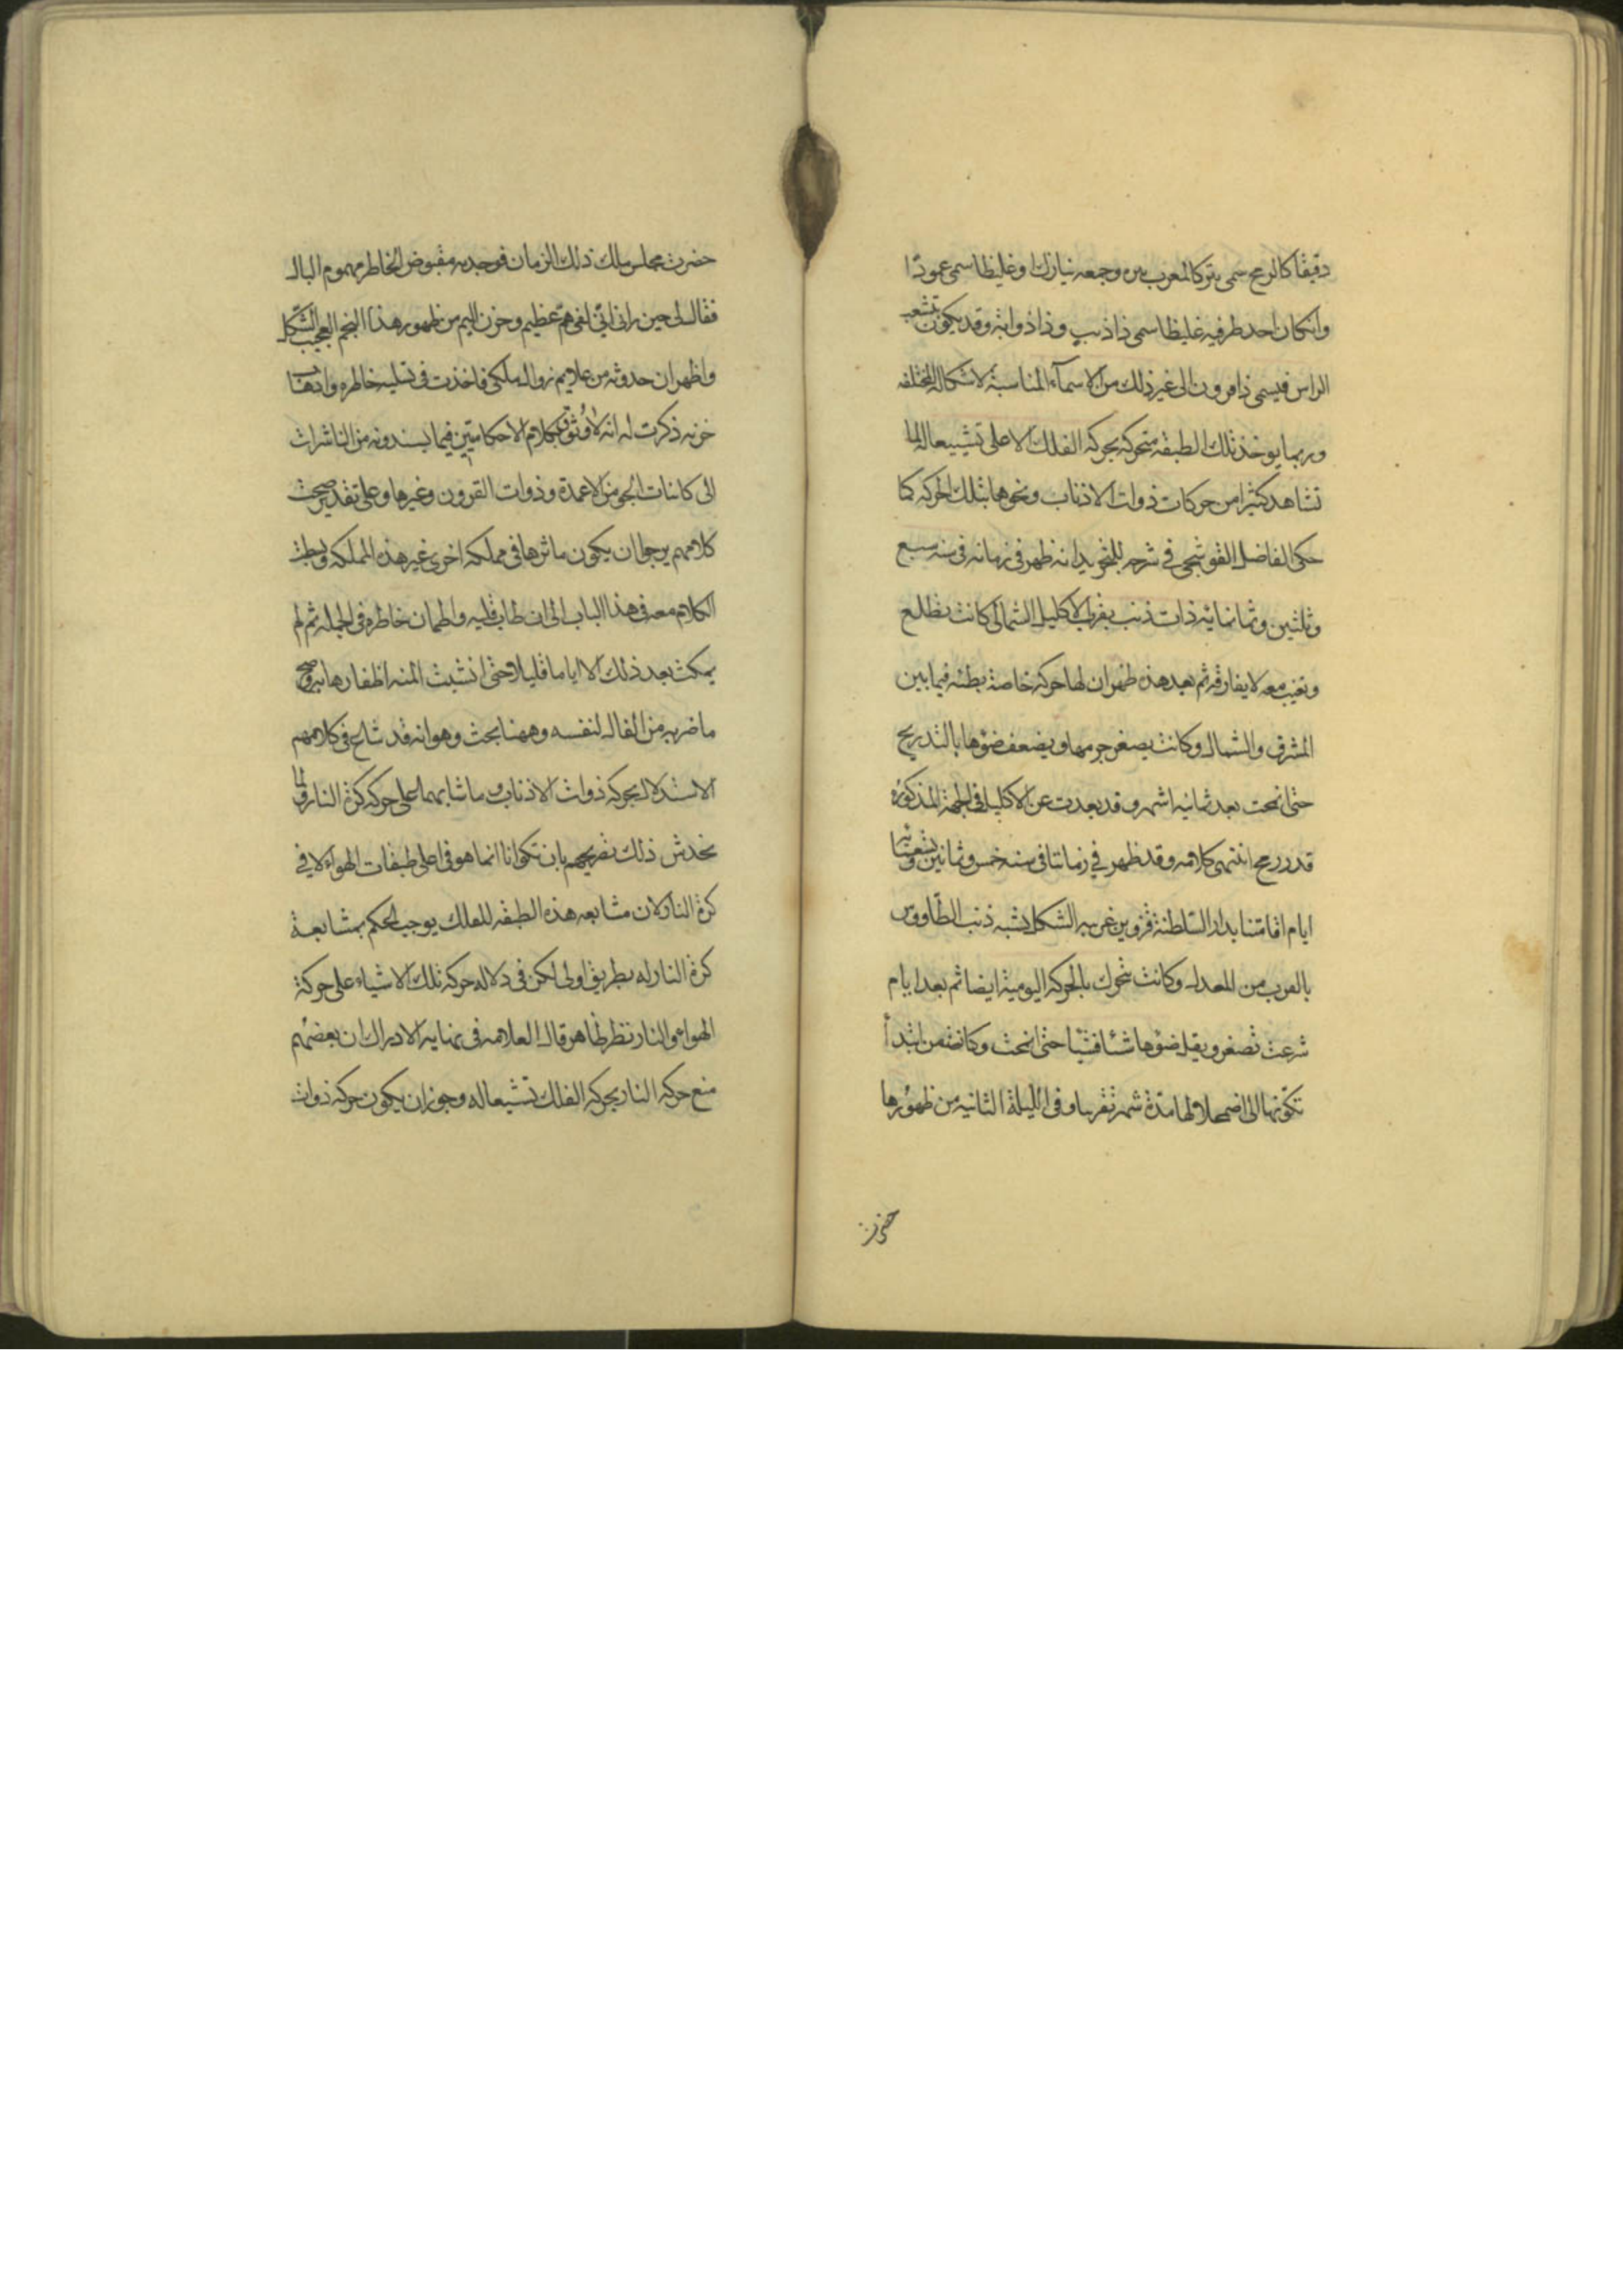 دقيقا كالرمح سمى نيزكا لمعرب نيزه وجمعه نيازك او غليظا سمى عمودا
وانكان احد طرفيه غليظا سمى ذا ذنب وذا ذوابة وقد يكون تشعب
الراس فيسمى ذا قرون الى غير ذلك من الاسماء المناسبة لاشكاله المختلفه
وربما يوخذ تلك الطبقه متحركه بحركه الفلك الاعلى تشييعا له لما
تشاهد كثيرا من حركات ذوات الاذناب ونحوها بتلك الحركه كما
حكى الفاضل القوشجى في شرحه للتجريد انه ظهر فى زمانه فى سنه سبع
وثلثين وثمانمائه ذات ذنب بقرب الاكليل الشمالى كانت تطلع
وتغيب معه لا يفارقه ثم بعد هذه ظهر ان لها حركه خاصة بطئه فيما بين
المشرق والشمال وكانت يصغر جرمها ويضعف ضوها بالتدريج
حتى انمحت بعد ثمانيه اشهر وقد بعدت عن الاكليل فى الجهة المذكوره
قدر رمح انتهى كلامه وقد ظهر في زماننا فى سنه خمس وثمانين وتسعمائه
ايام اقامتنا بدار السلطنة قزوين غريبه الشكل يشبه ذنب الطاووس
بالقرب من المعدل وكانت تتحرك بالحركه اليومية ايضا ثم بعد ايام
شرعت تصغر ويقل ضوها شئا فشيا حتى انمحت وكانت من ابتدأ
تكونها الى اضمحلالها مدة شهر تقريبا وفى الليلة الثانيه من ظهورها
حضرت
حضرت مجلس ملك ذلك الزمان فوجدته مقبوض الخاطر مهموم البال
فقال لى حين رانى انى لفى هم عظيم وحزن اليم من ظهور هذا النجم العجيب الشكل
واظهر ان حدوثه من علايم زوال ملكى فاخذت فى تسليه خاطره واذهاب
حزنه ذكرت له انه لا وثوق بكلام الاحكاميين فيما يسندونه من التاثيرات
الى كاينات الجو من الاعمدة وذوات القرون وغيرها وعلى تقدير صحت
كلامهم يرجو ان يكون ماثرها فى مملكه اخرى غير هذه المملكه وبسطت
الكلام معه فى هذا الباب الى ان طاب قلبه واطمان خاطره فى الجمله ثم لم
يمكث بعد ذلك الا اياما قليلا حتى انشبت المنيه اظفارها به وصح
ما ضربه من الفال لنفسه وههنا بحث وهو انه قد شاع فى كلامهم
الاستدلال بحركه ذوات الاذناب وما شابهها على حركه كرة النار ولما
يخدش ذلك تصريحهم بان تكونها انما هو فى اعلى طبقات الهواء لا في
كرة النار لان مشايعه هذه الطبقه للفلك يوجب الحكم بمشايعة
كرة النار له بطريق اولى لكن فى دلاله حركه تلك الاشياء على حركة
الهواء والنار نظر ظاهر قال العلامه فى نهايه الادراك ان بعضهم
منع حركه النار بحركه الفلك تشييعا له وجوز ان يكون حركه ذوات